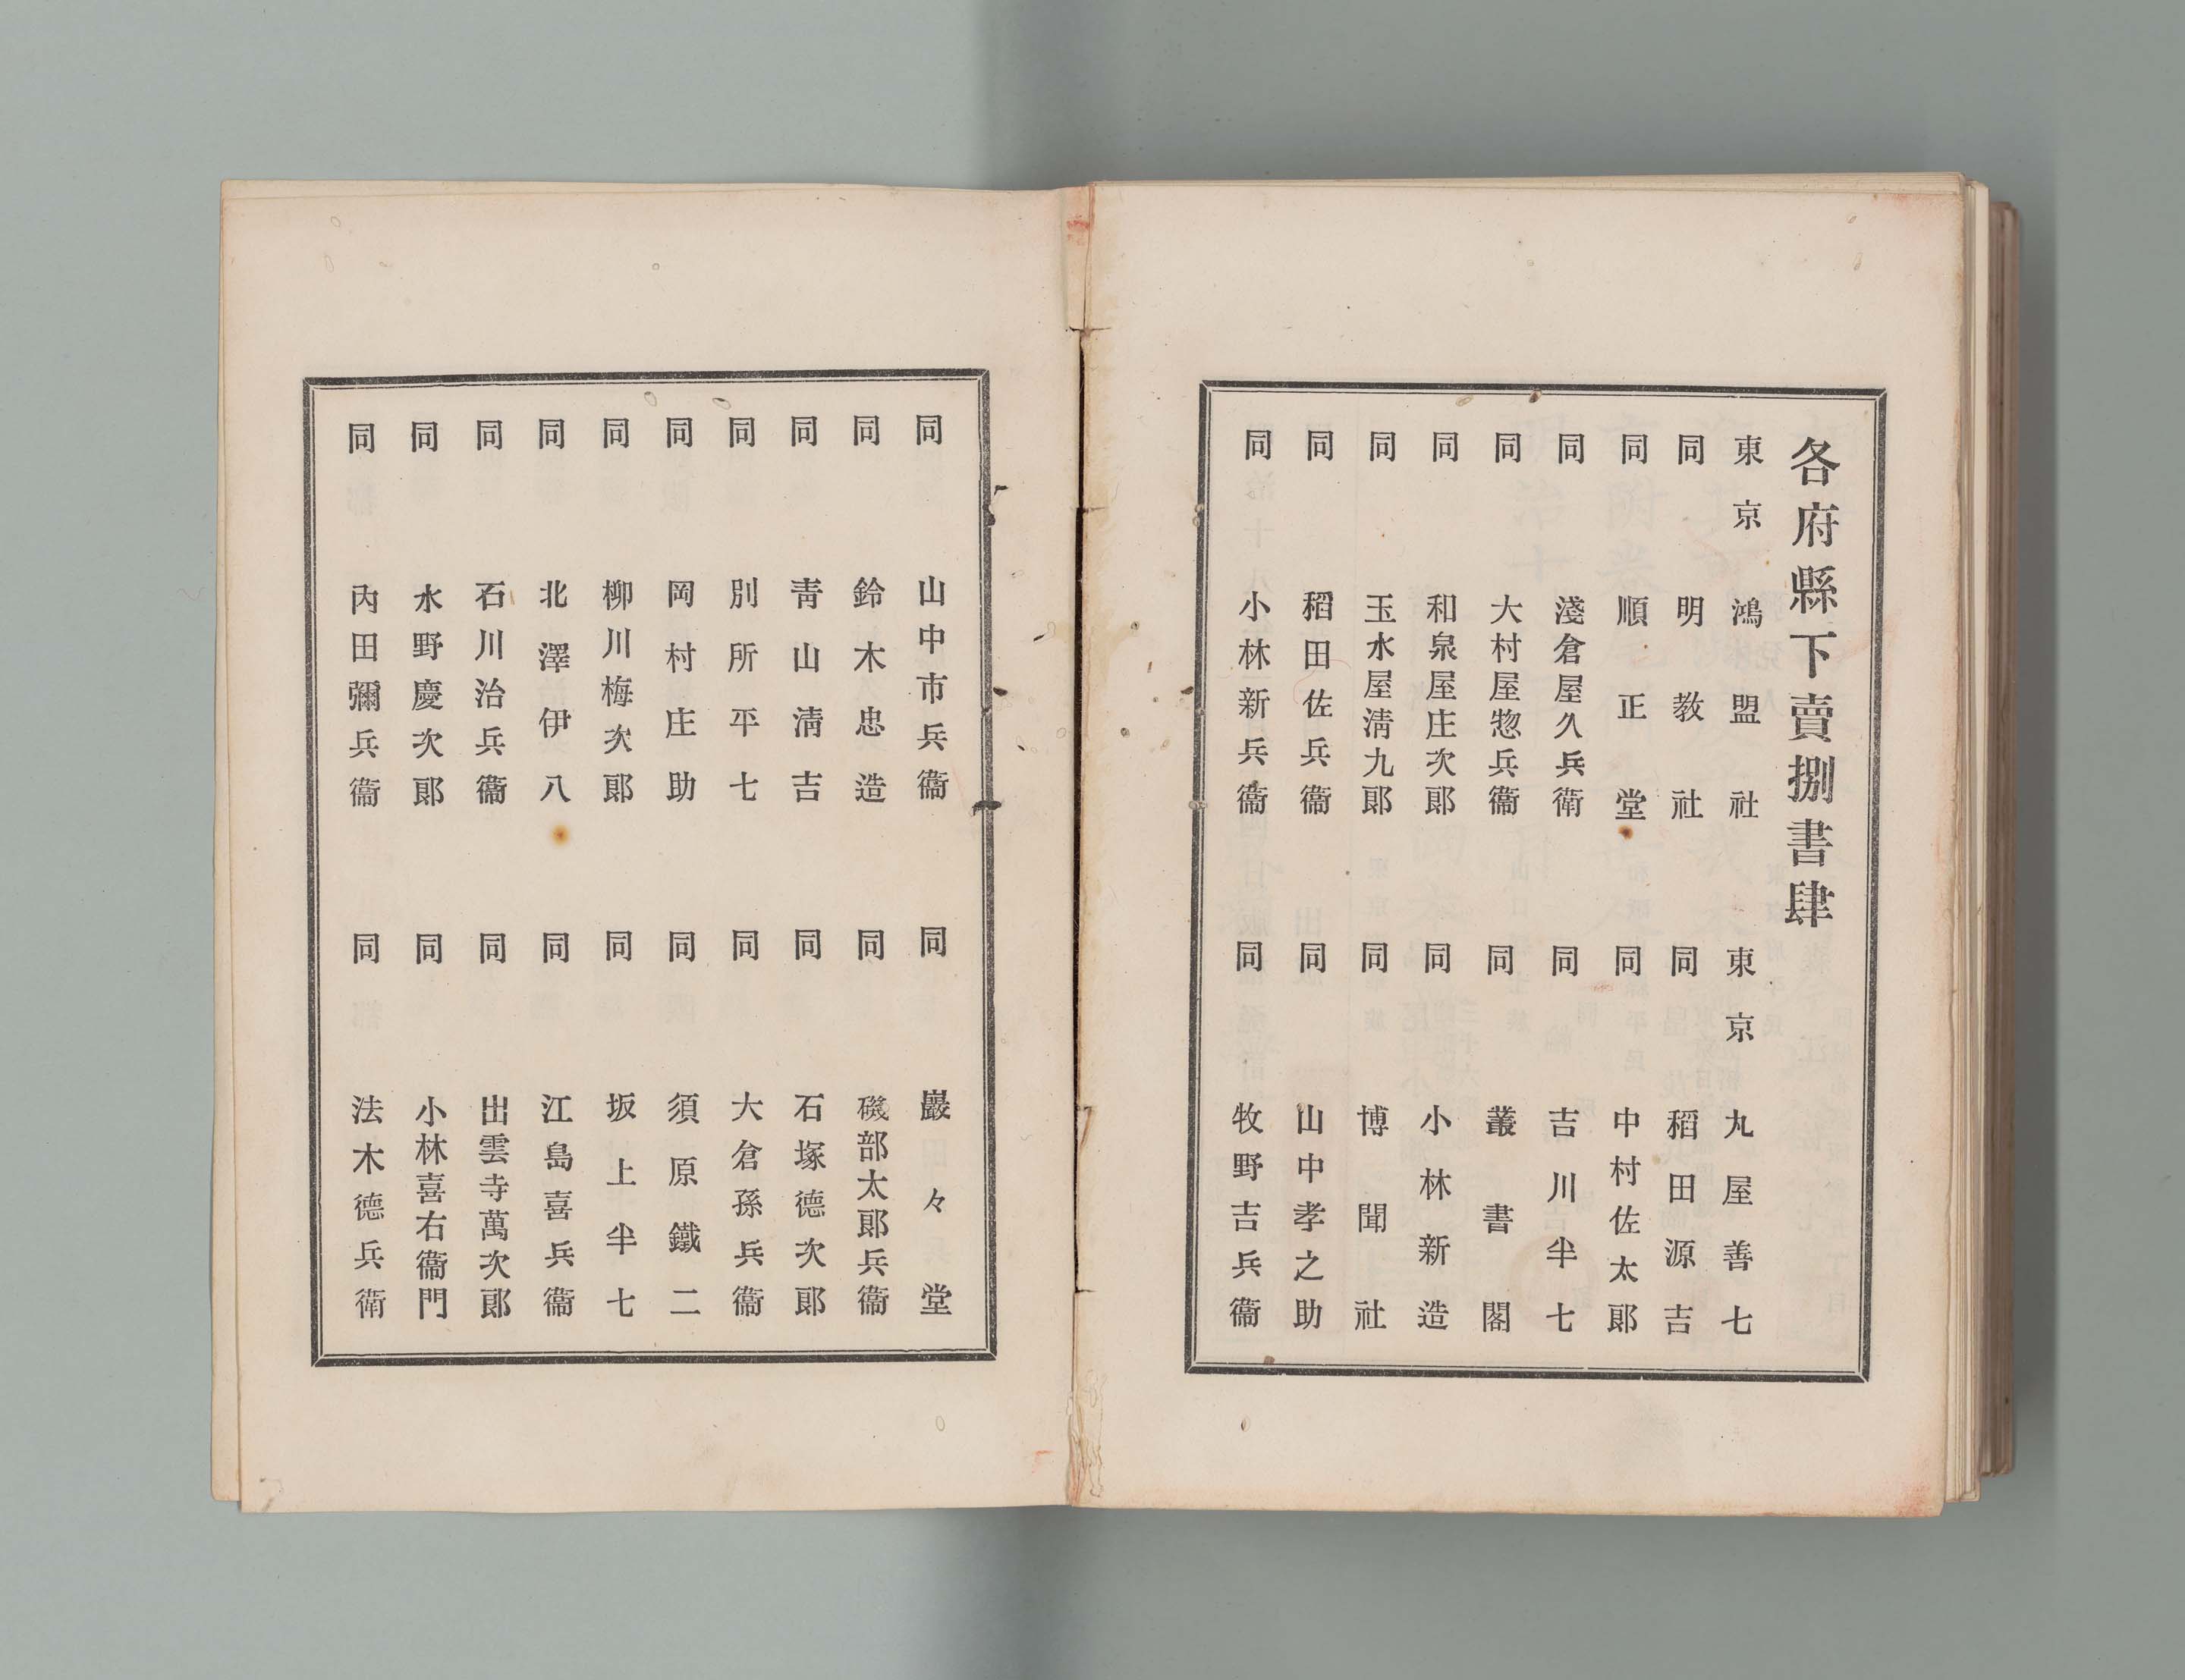 各府縣下賣捌書肆
東京 鴻盟社
同 明教社
同 順正堂
同 淺倉屋久兵衛
同 大村屋惣兵衞
同 和泉屋庄次郞
同 玉水屋淸九郞
同 稻田佐兵衞
同 小林新兵衞
東京 丸屋善七
同 稻田源吉
同 中村佐太郞
同 吉川半七
同 叢書閣
同 小林新造
同 博聞社
同 山中孝之助
同 牧野吉兵衞
同 山中市兵衞
同 鈴木忠造
同 靑山淸吉
同 別所平七
同 岡村庄助
同 柳川梅次郞
同 北澤伊八
同 石川治兵衞
同 水野慶次郞
同 內田彌兵衞
同 巖々堂
同 磯部太郞兵衞
同 石塚德次郞
同 大倉孫兵衞
同 須原鐵二
同 坂上半七
同 江島喜兵衞
同 出雲寺萬次郞
同 小林喜右衞門
同 法木德兵衛